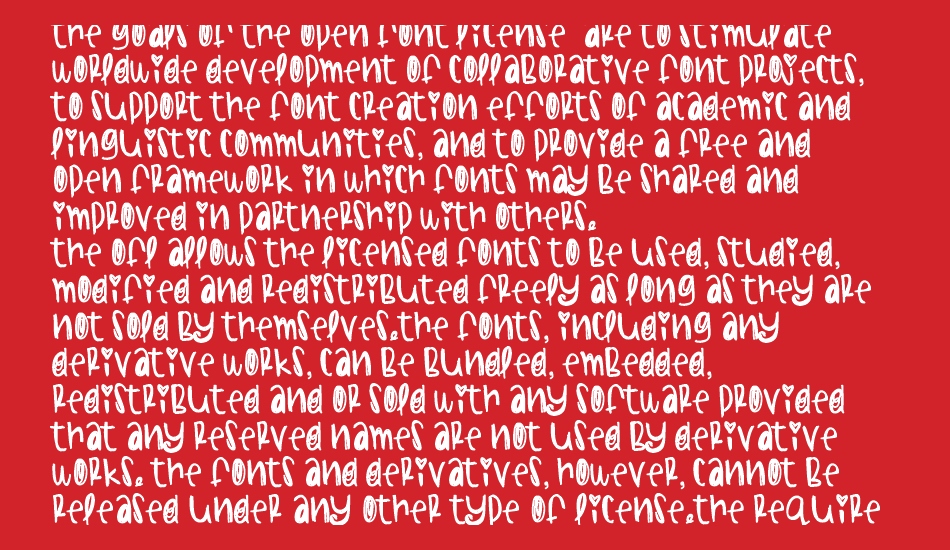 the goals of the open font license are to stimulate
worldwide development of collaborative font projects,
to support the font creation efforts of academic and
linguistic communities, and to provide a free and
open framework in which fonts may be shared and
improved in partnership with others.
the ofl allows the licensed fonts to be used, studied,
modified and redistributed freely as long as they are
not sold by themselves.the fonts, including any
derivative works, can be bundled, embedded,
redistributed and or sold with any software provided
that any reserved names are not used by derivative
works. the fonts and derivatives, however, cannot be
released under any other type of license.the require